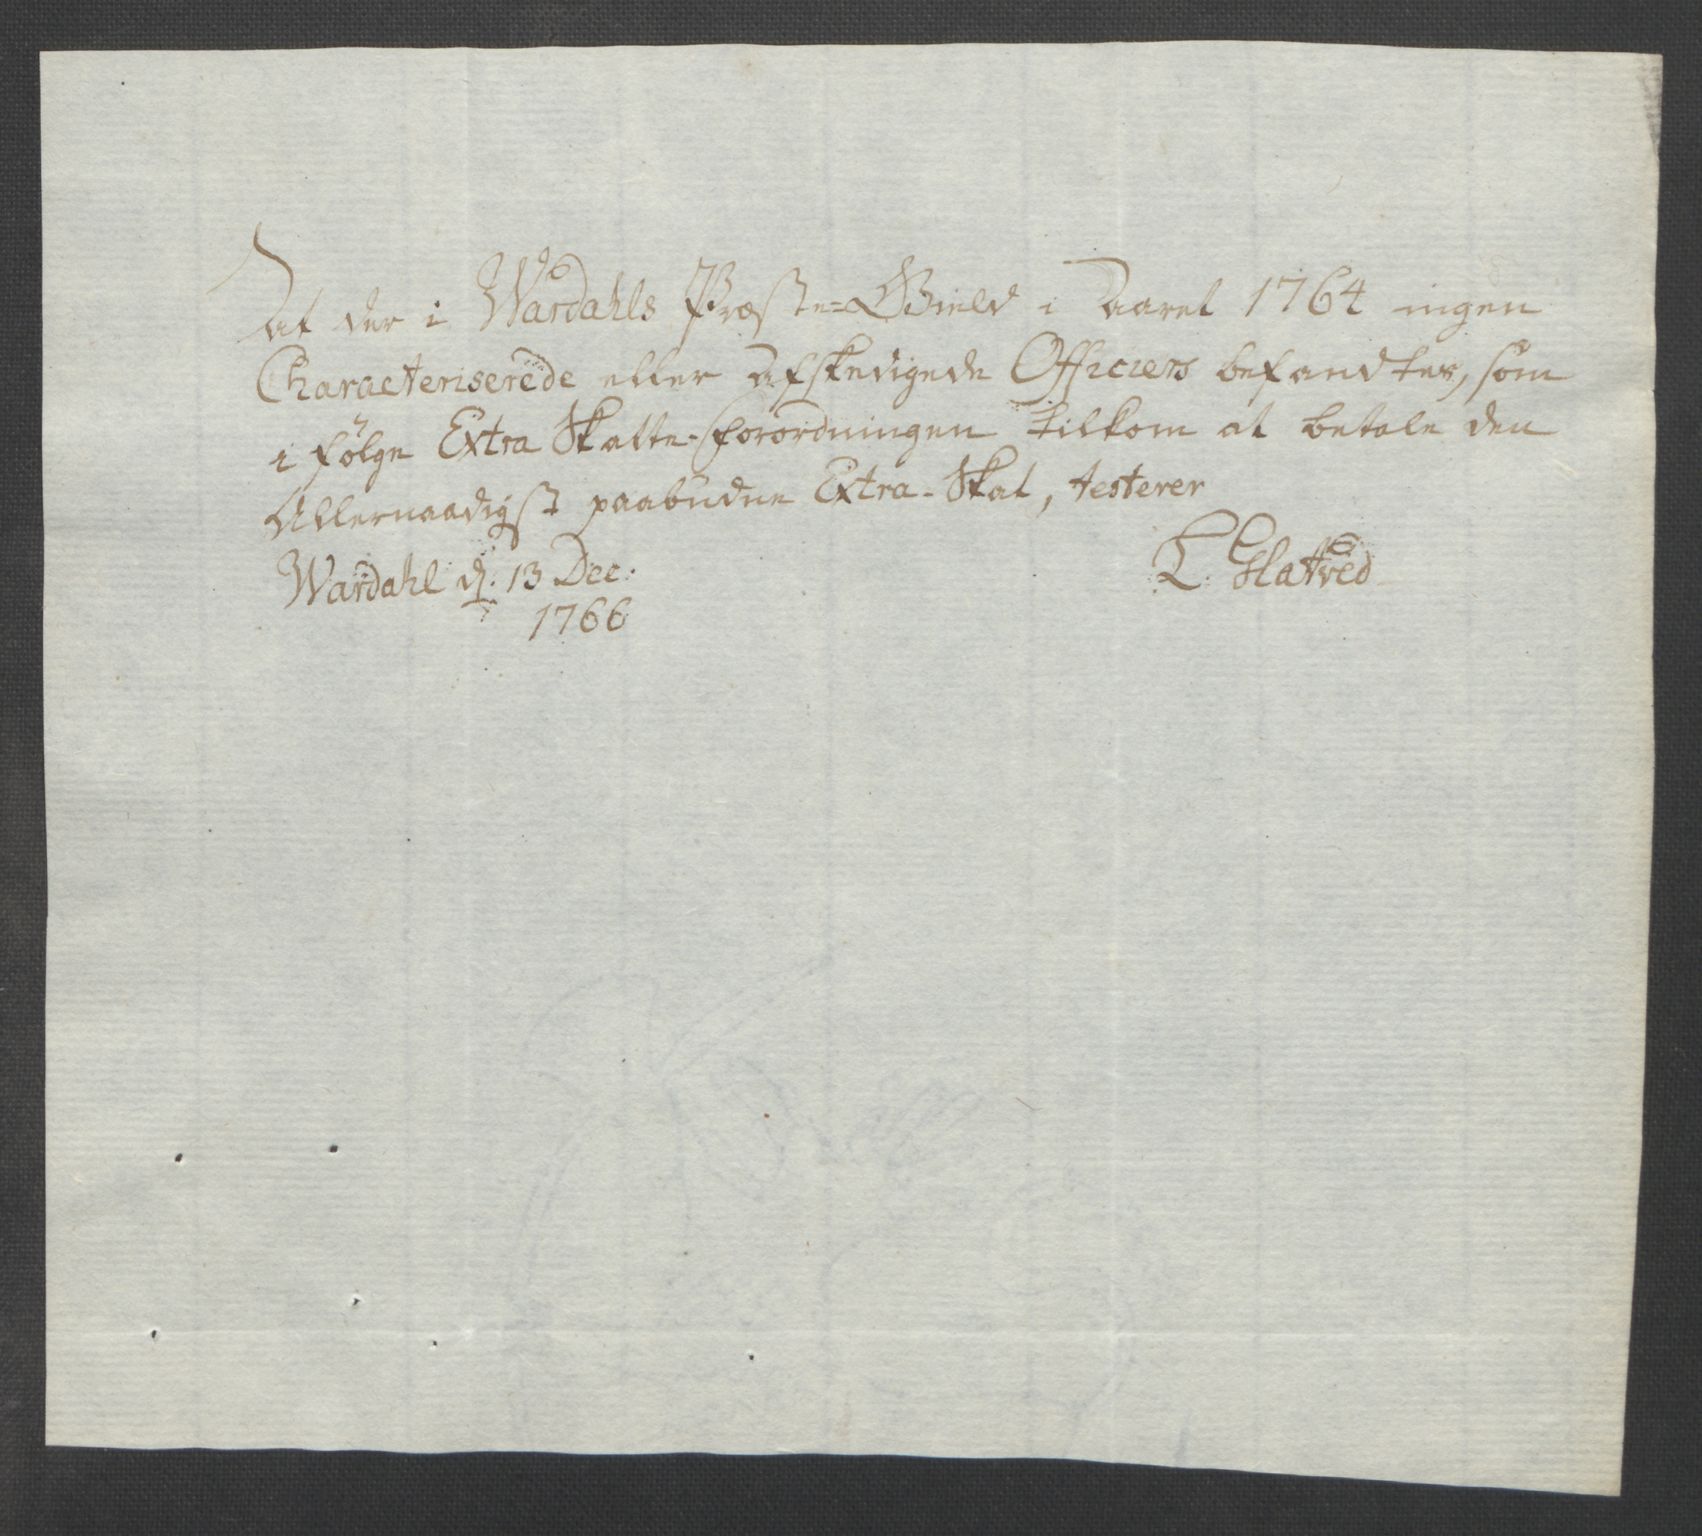 At der i Wærdahls Præste=Gield i Aaret 1764 ingen
Characteriserede eller Afskedigede Officiers befandtes, som
i følge Extra Skatte-forordningen tilkom at betale den
Allernaadigst paabudne Extra-Skat, testerer
Wærdahl d. 13 Dec:
1766